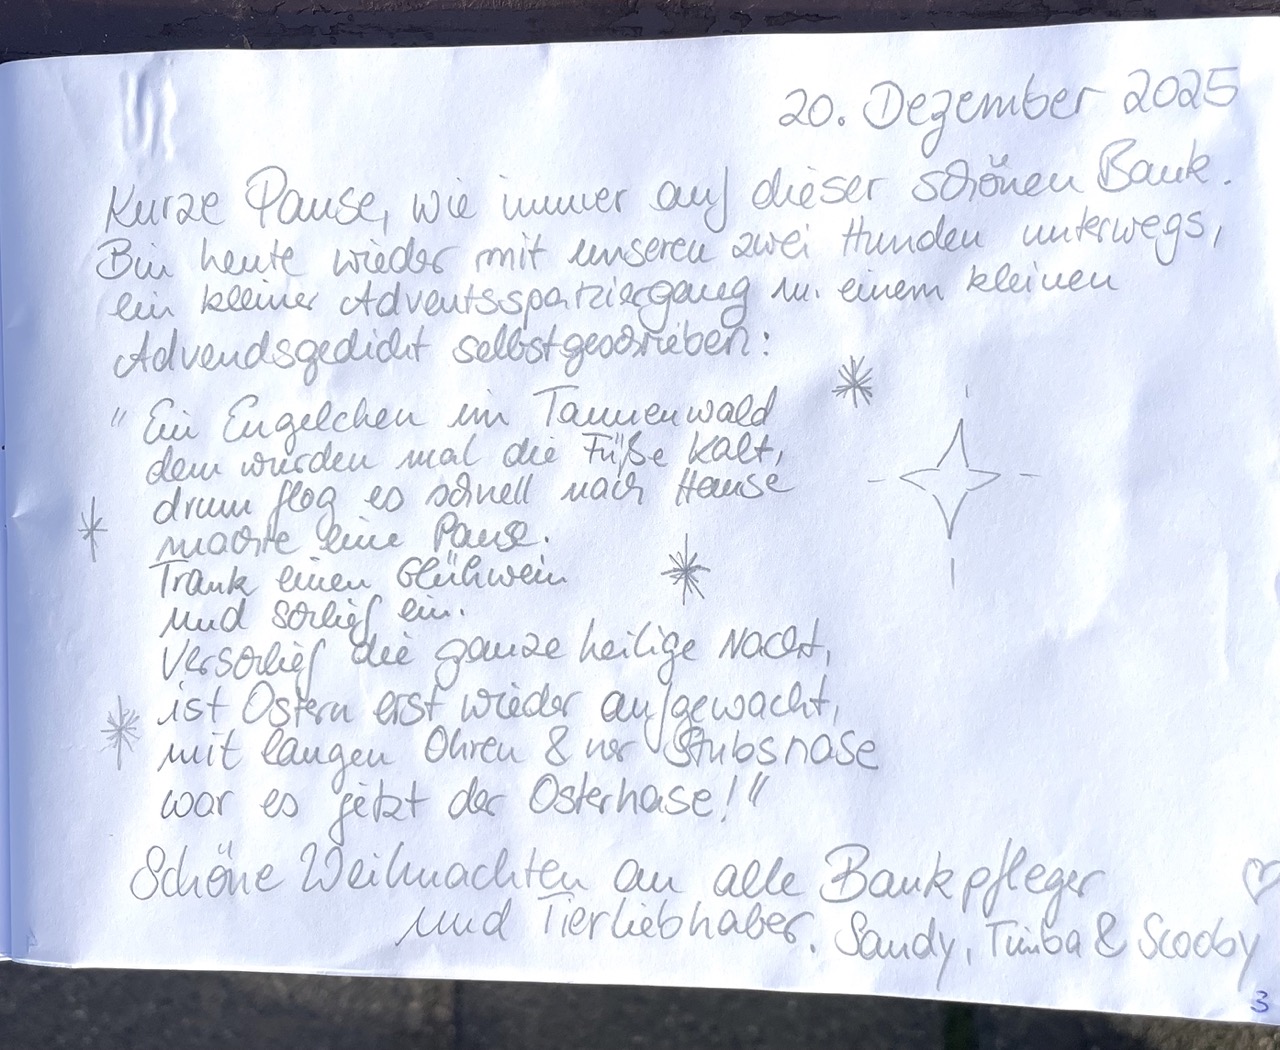 20. Dezember 2025
Kurze Pause, wie immer auf dieser schönen Bank.
Bin heute wieder mit unseren zwei Hunden unterwegs,
ein kleiner Adventsspatziergang m. einem kleinen
Advendsgedicht selbstgeschrieben:
"Ein Engelchen im Tannenwald
dem wurden mal die Füße kalt,
drum flog es schnell nach Hause
machte eine Pause.
Trank einen Glühwein
und schlief ein.
Verschlief die ganze heilige Nacht,
ist Ostern erst wieder aufgewacht,
mit langen Ohren & ner Stubsnase
war es jetzt der Osterhase!"
Schöne Weihnachten an alle Bankpfleger
und Tierliebhaber. Sandy, Timba & Scooby
3